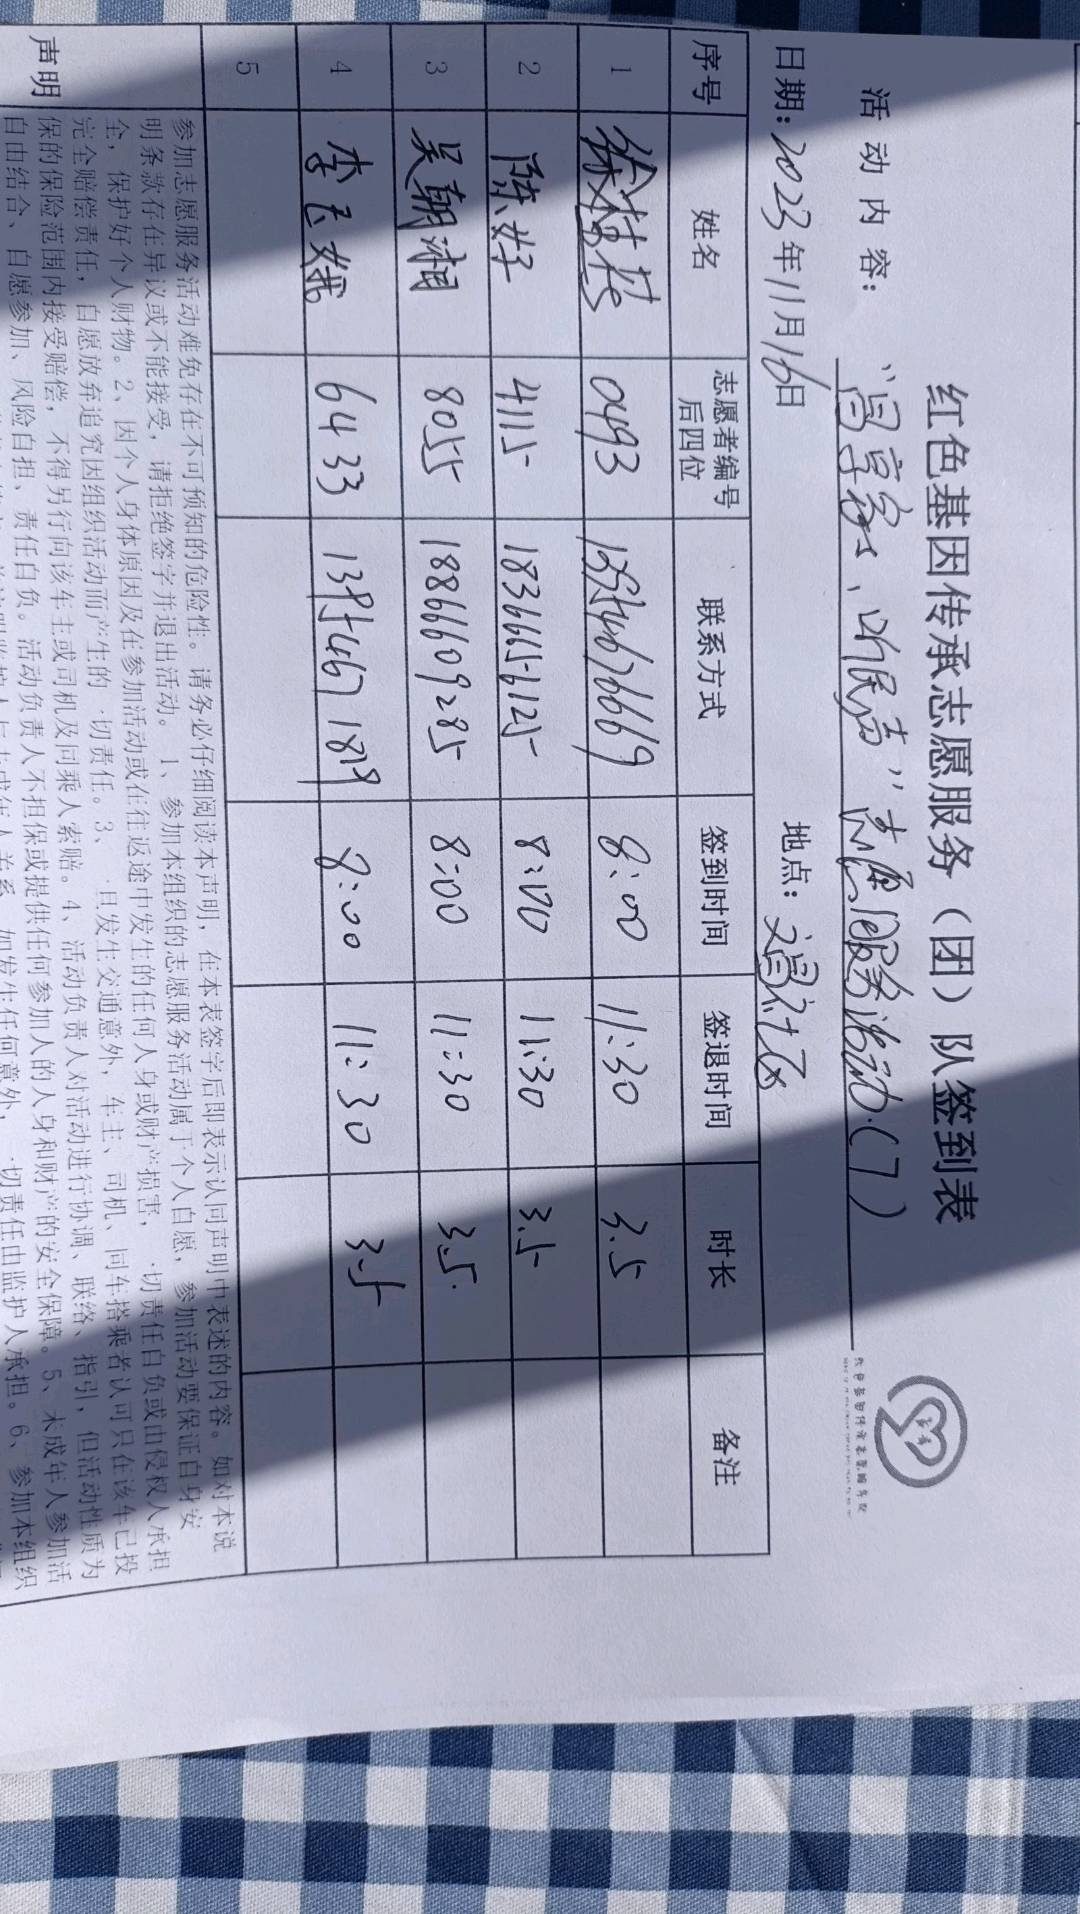 红色基因传承志愿服务（团）队签到表
活动内容：“冒字家书、听民声”志愿服务活动（7）
日期：2023年11月16日 地点：文昌社区
序号 姓名 志愿者编号后四位 联系方式 签到时间 签退时间 时长 备注
1 0493 8:00 11:30 3.5
2 陈好 4115 18366656125 8:00 11:30 3.5
3 吴朝湘 8055 18866609285 8:00 11:30 3.5
4 李玉娥 6433 13954671819 8:00 11:30 3.5
5
声明
参加志愿服务活动难免存在不可预知的危险性。请务必仔细阅读本声明，在本表签字后即表示认同声明中表述的内容。如对本说
明条款存在异议或不能接受，请拒绝签字并退出活动。1、参加本组织的志愿服务活动属于个人自愿，参加活动要保证自身安
全，保护好个人财物。2、因个人身体原因及在参加活动或在往返途中发生的任何人身或财产损害，一切责任自负或由侵权人承担
完全赔偿责任，自愿放弃追究因组织活动而产生的一切责任。3、一旦发生交通意外，车主、司机、同车搭乘者认可只在该车已投
保的保险范围内接受赔偿，不得另行向该车主或司机及同乘人索赔。4、活动负责人对活动进行协调、联络、指引，但活动性质为
自由结合、自愿参加、风险自担、责任自负。活动负责人不担保或提供任何参加人的人身和财产的安全保障。5、未成年人参加活
如发生任何意外，一切责任由监护人承担。6、参加本组织